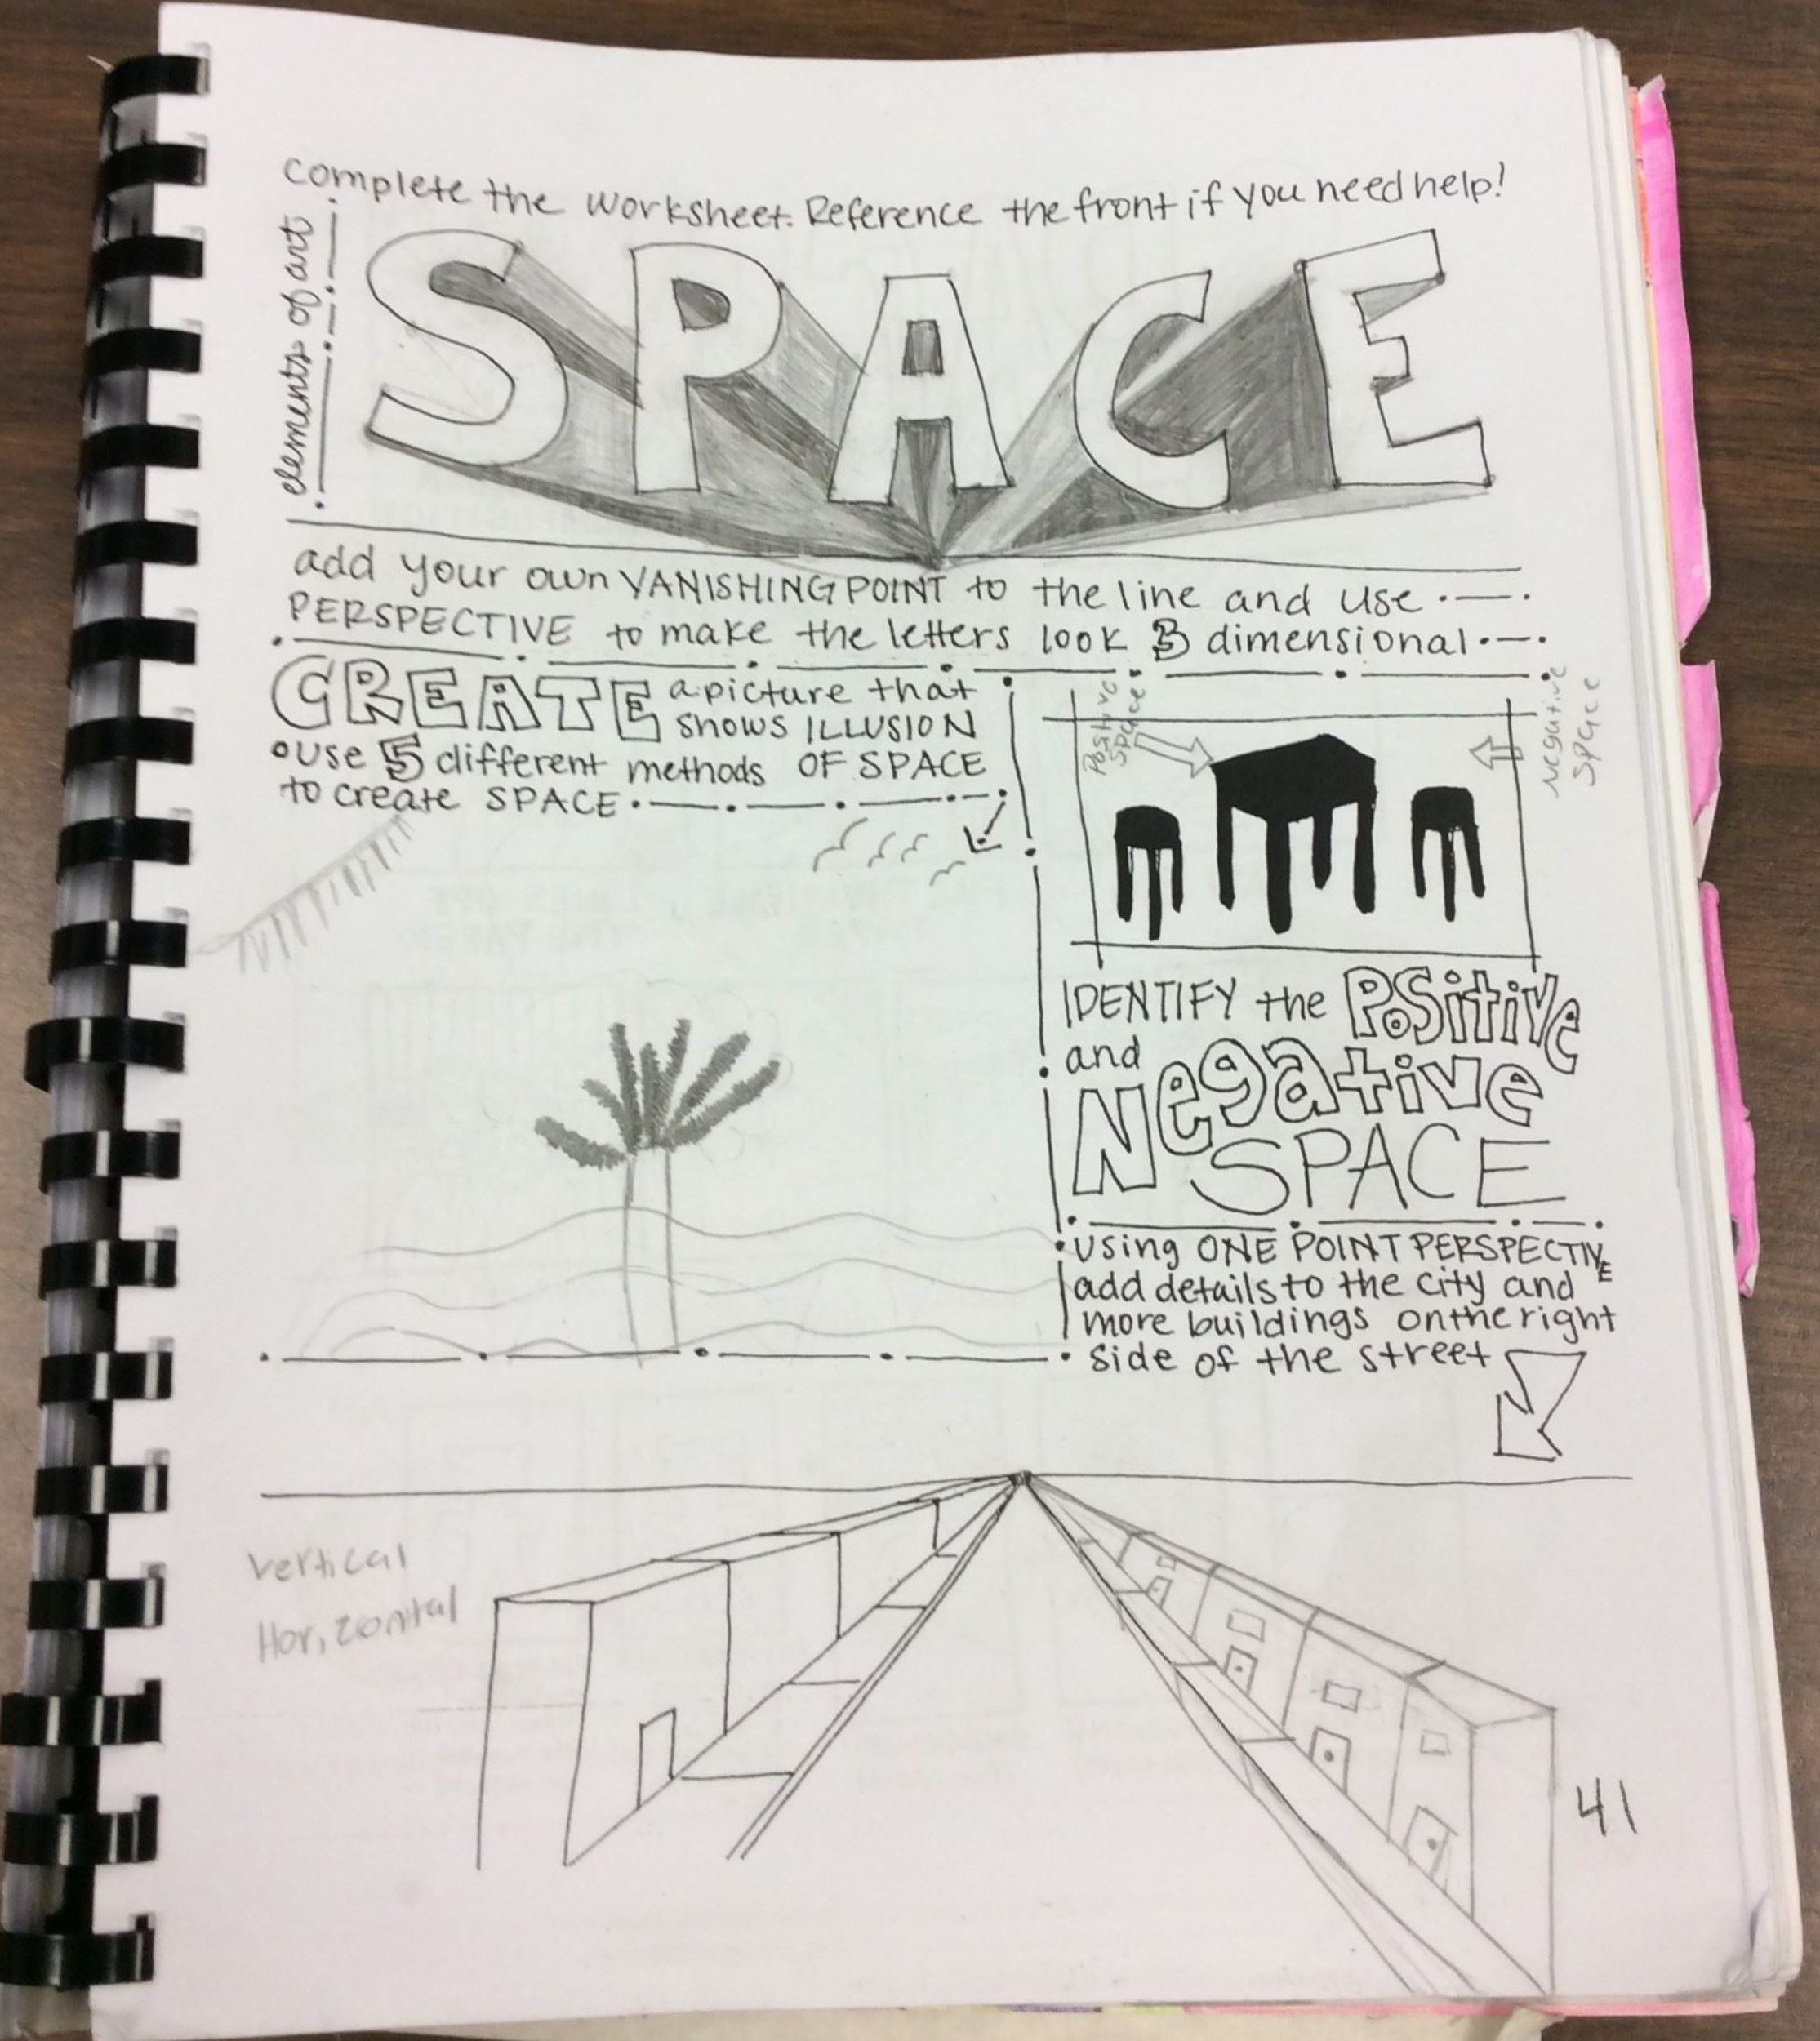 complete the worksheet. Reference the front if you need help!
elements of art
SPACE
add your own VANISHING POINT to the line and use
PERSPECTIVE to make the letters look 3 dimensional
CREATE a picture that
shows ILLUSION
use 5 different methods OF SPACE
to create SPACE
Positive
space
negative
space
IDENTIFY the Positive
and
Negative
SPACE
using ONE POINT PERSPECTIVE
add details to the city and
more buildings on the right
side of the street
vertical
Horizontal
41